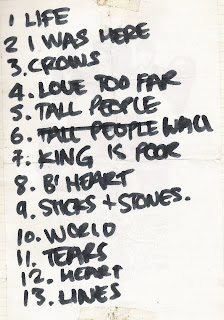 1 LIFE
2 I WAS HERE
3. CROWS
4. LOVE TOO FAR
5. TALL PEOPLE
6. TALL PEOPLE WALL
7. KING IS POOR
8. B'HEART
9. STICKS + STONES.
10. WORLD
11. TEARS
12. HEART
13. LINES